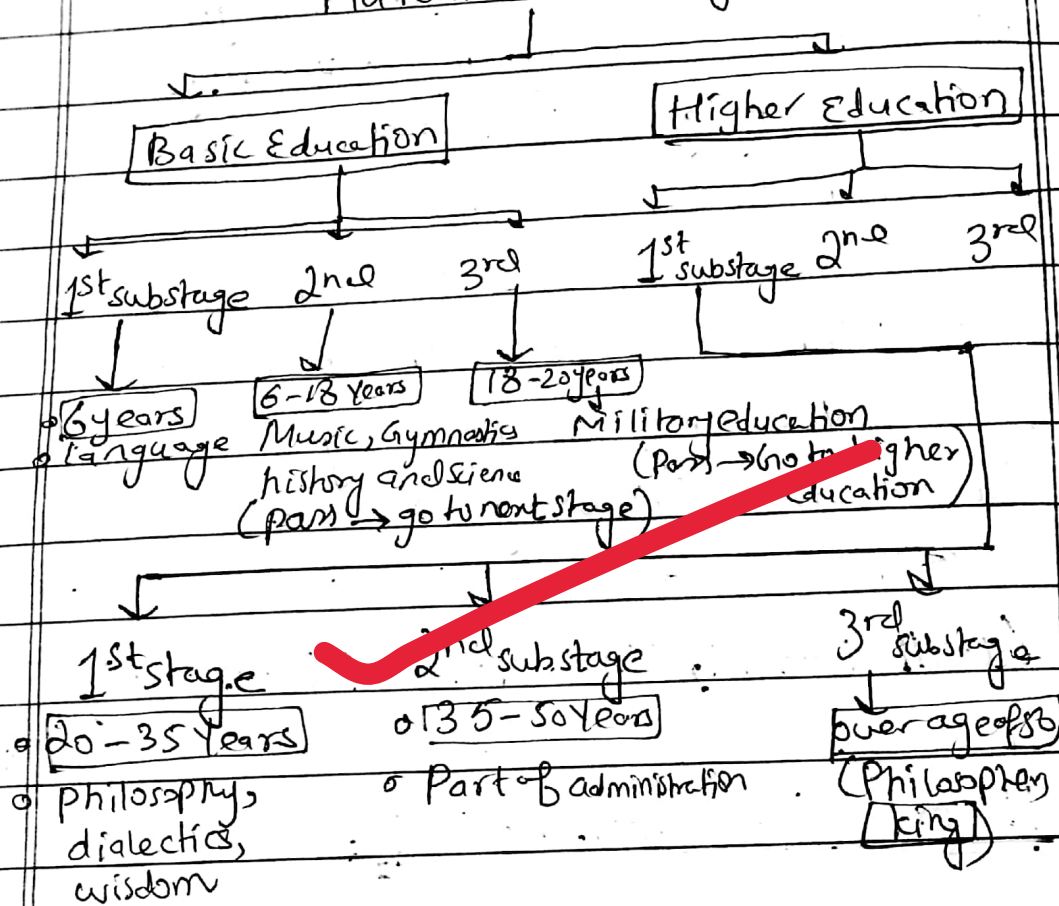 Basic Education
Higher Education
1st substage 2nd 3rd
1st substage 2nd 3rd
6 years
language
6-18 Years
Music, Gymnastics
history and science
(pass → go to next stage)
18-20 years
Military education
(Pass → Go to higher
Education)
1st stage
20-35 Years
philosophy,
dialectics,
wisdom
2nd substage
35-50 Years
Part of administration
3rd substage
over age of 50
(Philosopher
king)